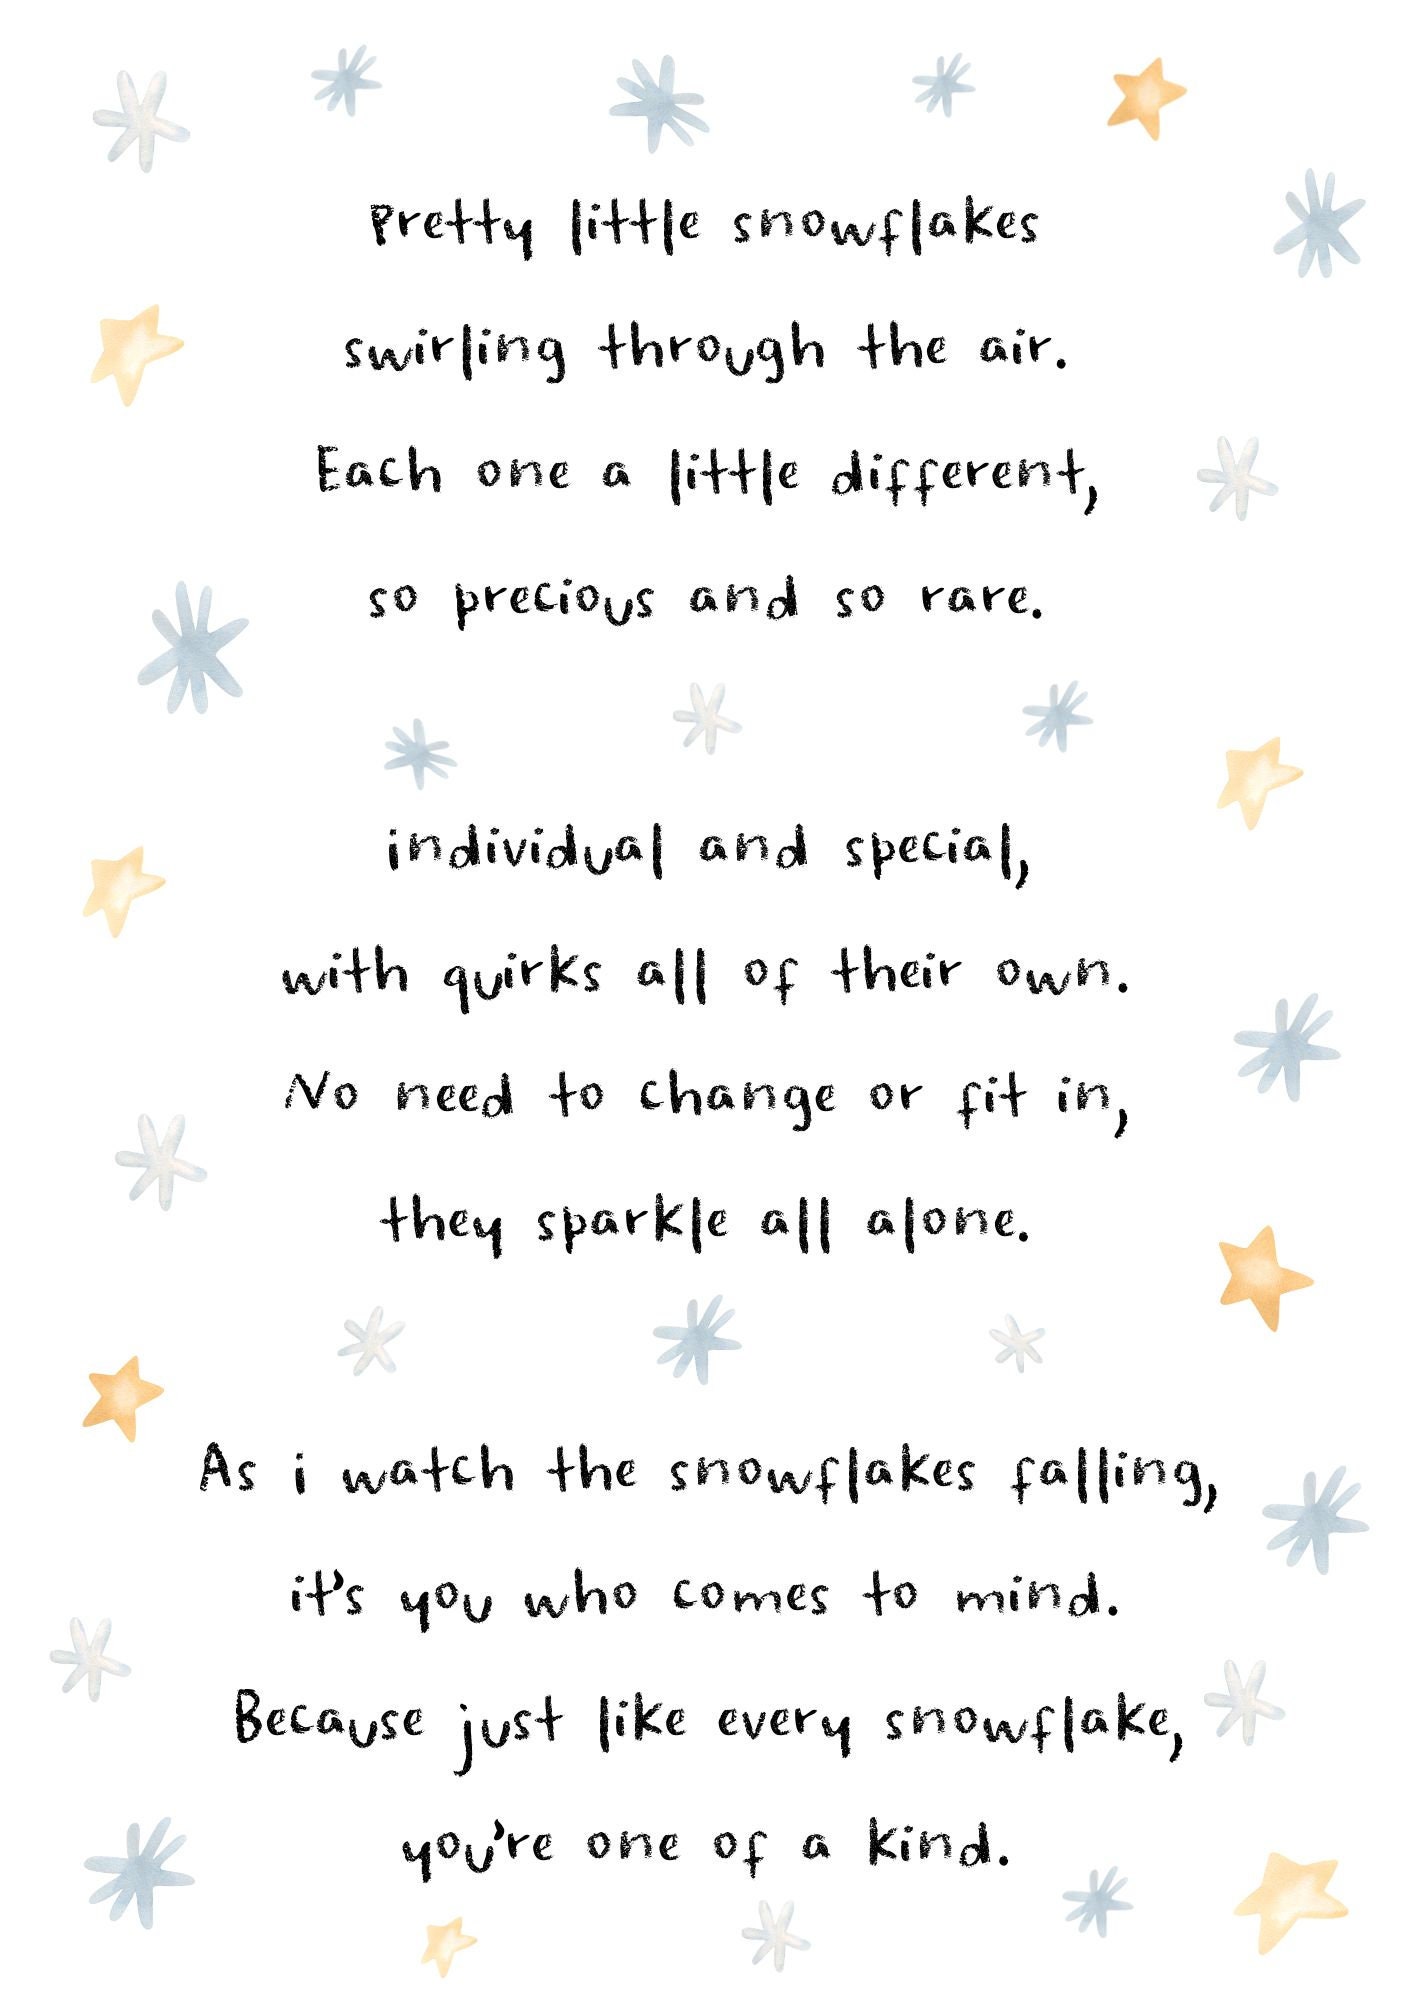 Pretty little snowflakes
swirling through the air.
Each one a little different,
so precious and so rare.
individual and special,
with quirks all of their own.
No need to change or fit in,
they sparkle all alone.
As i watch the snowflakes falling,
it's you who comes to mind.
Because just like every snowflake,
you're one of a kind.